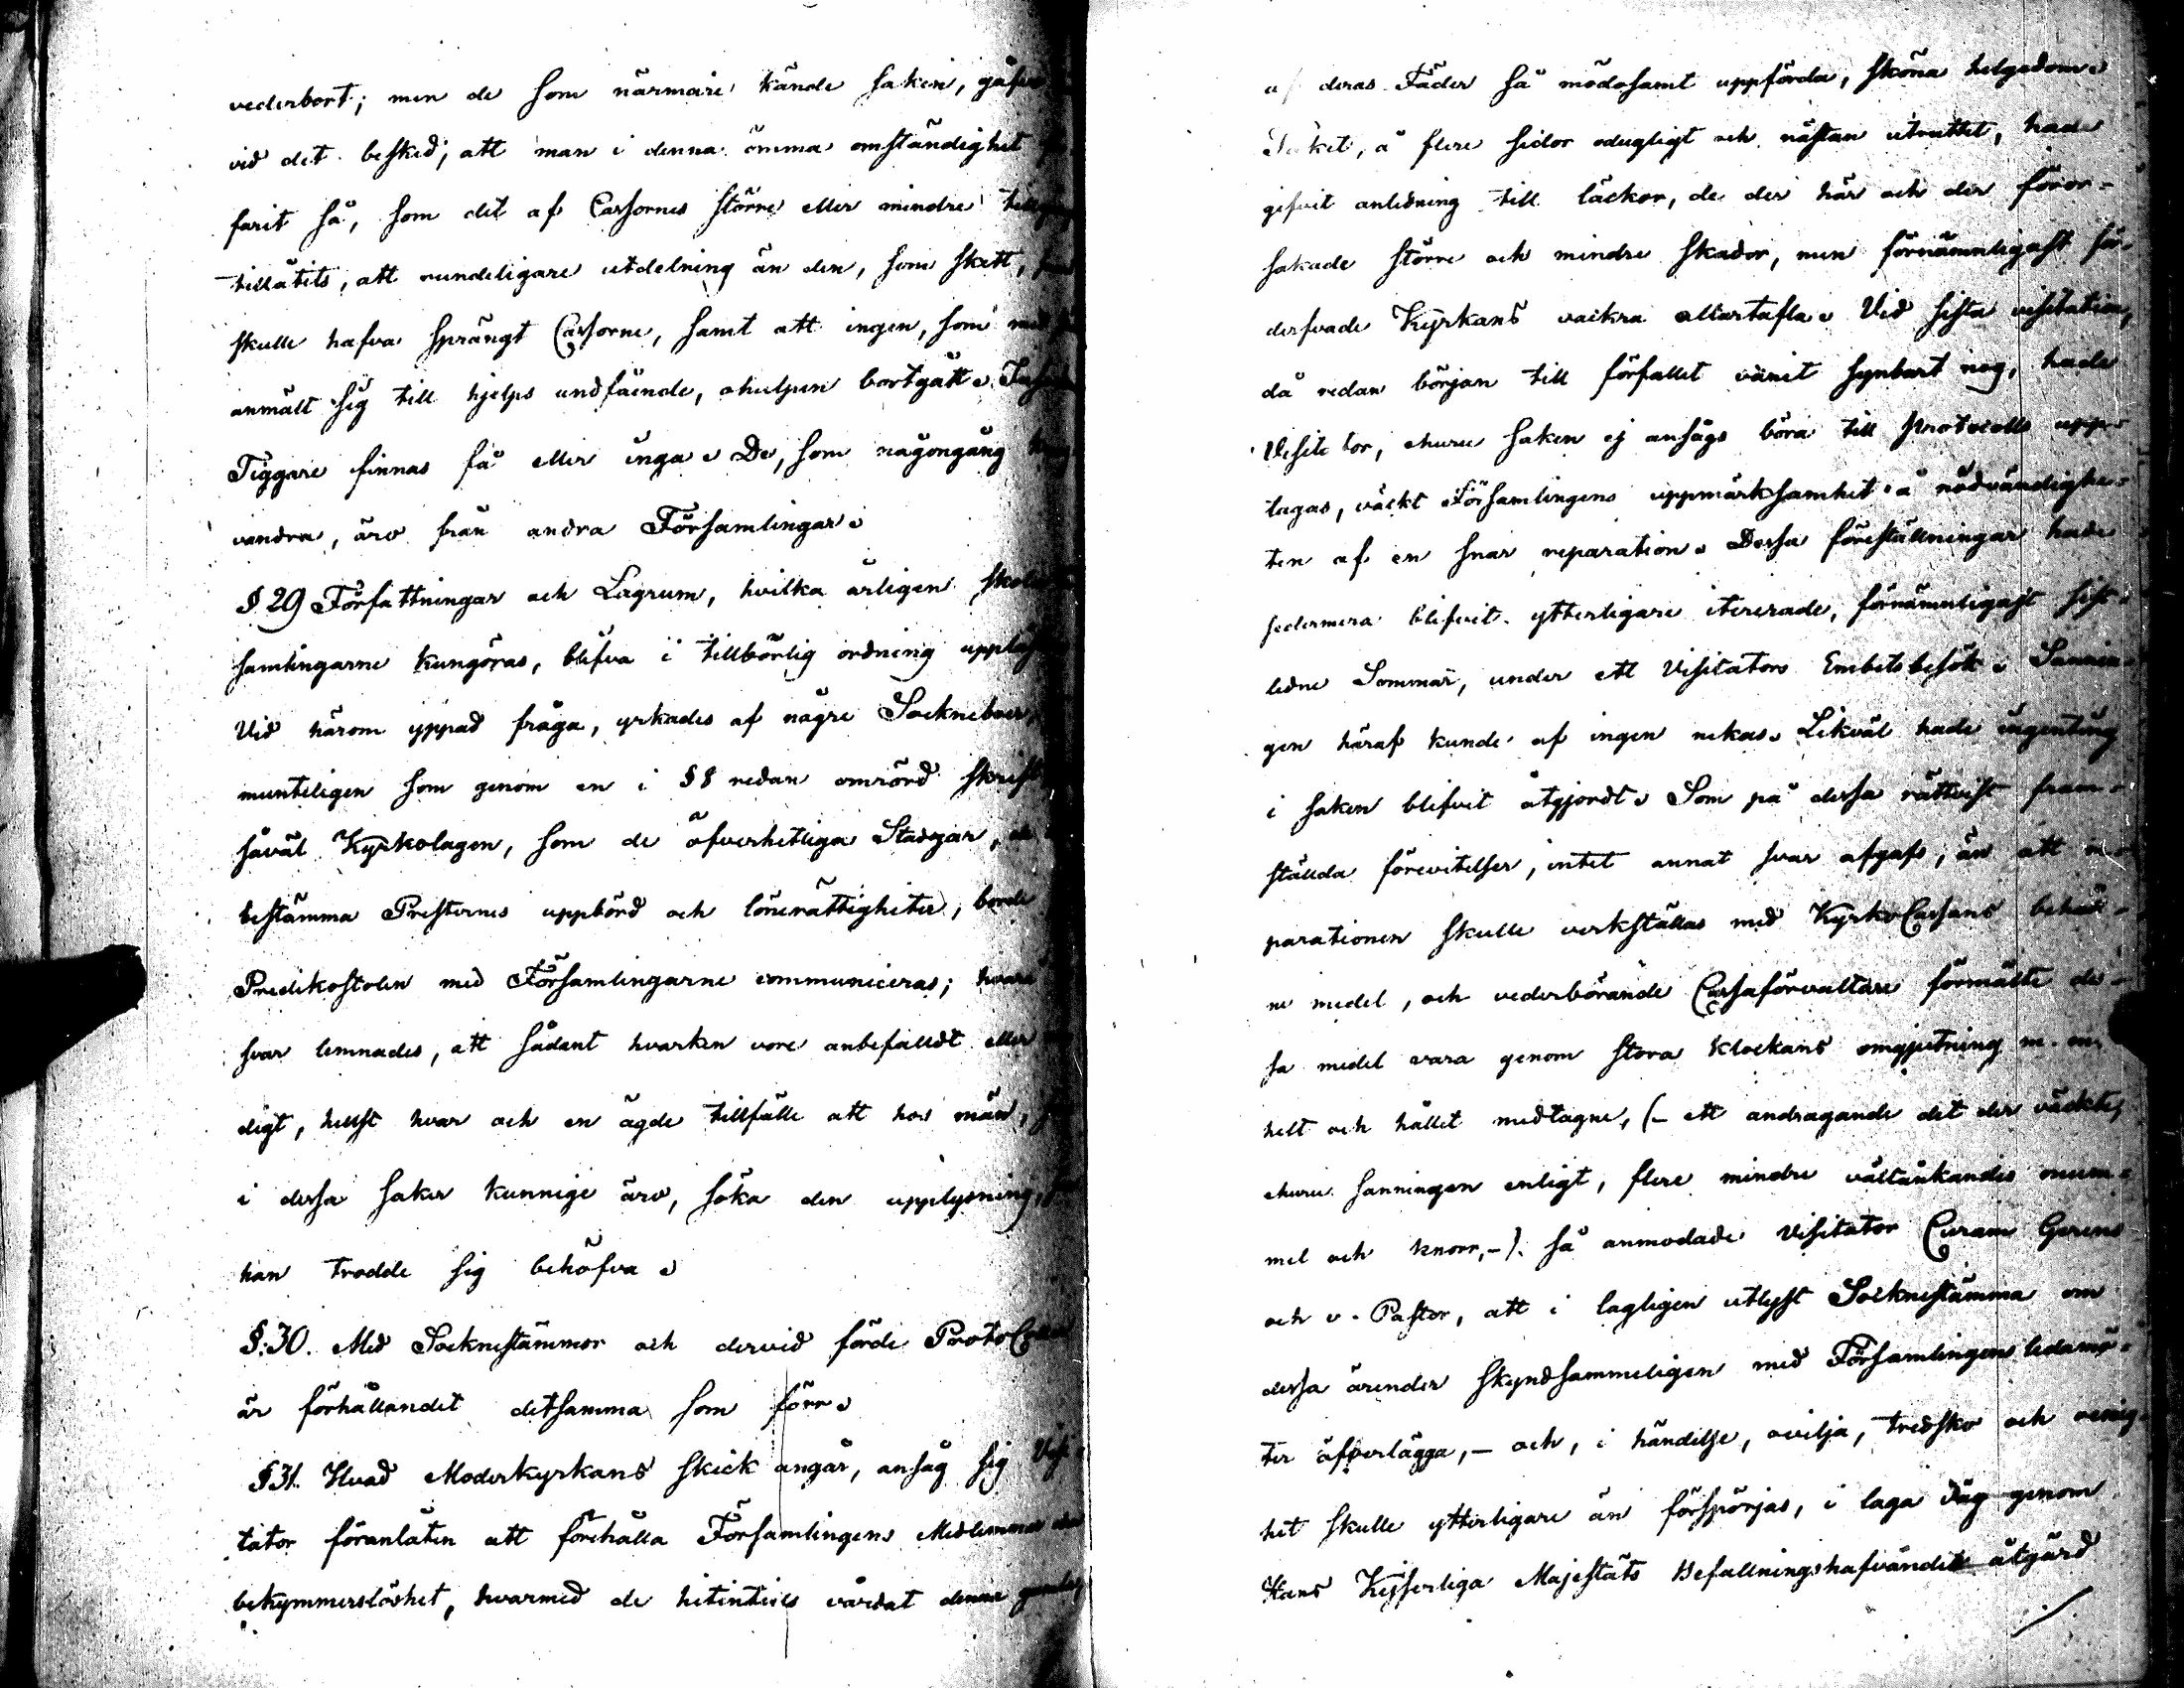 vederbort; men de som närmare kände saken, gåfvo
vid det besked; att man i denna ömma omständighet
farit så, som det af Cassornes större eller mindre
tillåtits, att rundeligare utdelning än den, som skett,
skulle hafva sprängt Cassorne, samt att ingen, som
anmält sig till hjelps undfående, ohulpen bortgått.
Tiggare finnas få eller inga. De, som någongång
vandra, äro från andra Församlingar.
§ 29 Författningar och Lagrum, hvilka årligen
samlingarne kungöras, blifva i tillbörlig ordning
Vid härom yppad fråga, yrkades af någre Sockneboer,
munteligen som genom en i § 8 redan omrörd
såväl Kyrkolagen, som de öfverhetliga Stadgar,
bestämma Presternes uppbörd och lönerättigheter, borde
Predikostolen med Församlingarne communiceras;
svar lemnades, att sådant hvarken vore anbefalldt eller
digt, helst hvar och en ägde tillfälle att hos män,
i dessa saker kunnige äro, söka den upplysning,
han trodde sig behöfva.
§:30. Med Socknestämmor och dervid förde
är förhållandet detsamma som förr.
§ 31. Hvad Moderkyrkans skick angår, ansåg sig Visi
tator föranlåten att förehålla Församlingens Medlemmar
bekymmerslöshet, hvarmed de hitintills vårdat denna
af deras Fäder så mödosamt uppförda, sköna helgedom.
Taket, å flere sidor odugligt och nästan utruttet, hade
gifvit anledning till läckor, de der här och der föror-
sakade större och mindre skador, men förnämnligast för-
derfvade Kyrkans vackra altartafla. Vid sista visitation,
då redan början till förfallet varit synbart nog, hade
Visitator, ehuru saken ej ansågs böra till Protocolls upp-
tagas, väckt Församlingens uppmärksamhet å nödvändighe-
ten af en snar reparation. Dessa föreställningar hade
sedermera blifvit ytterligare itererade, förnämnligast sist-
ledne Sommar, under ett Visitators Embetsbesök. Sannin-
gen häraf kunde af ingen nekas. Likväl hade ingenting
i saken blifvit åtgjordt. Som på dessa rättvist fram-
ställda förevitelser, intet annat svar afgafs, än att re-
parationen skulle verkställas med KyrkoCassans behåll-
ne medel, och vederbörande Cassaförvaltare förmälte des-
sa medel vara genom stora klockans omgjutning m. m.
helt och hållet medtagne, (- ett andragande det der väckte,
ehuru sanningen enligt, flere mindre vältänkandes mum-
mel och knorr,-). så anmodade Visitator Curam Gerens
och v. Pastor, att i lagligen utlyst Socknestämma om
dessa ärender skyndsammeligen med Församlingens ledamö-
ter öfverlägga, - och, i händelse, ovilja, tredsko och oenig-
het skulle ytterligare än förspörjas, i laga väg genom
Hans Kejserliga Majestäts Befallningshafvandes åtgärd